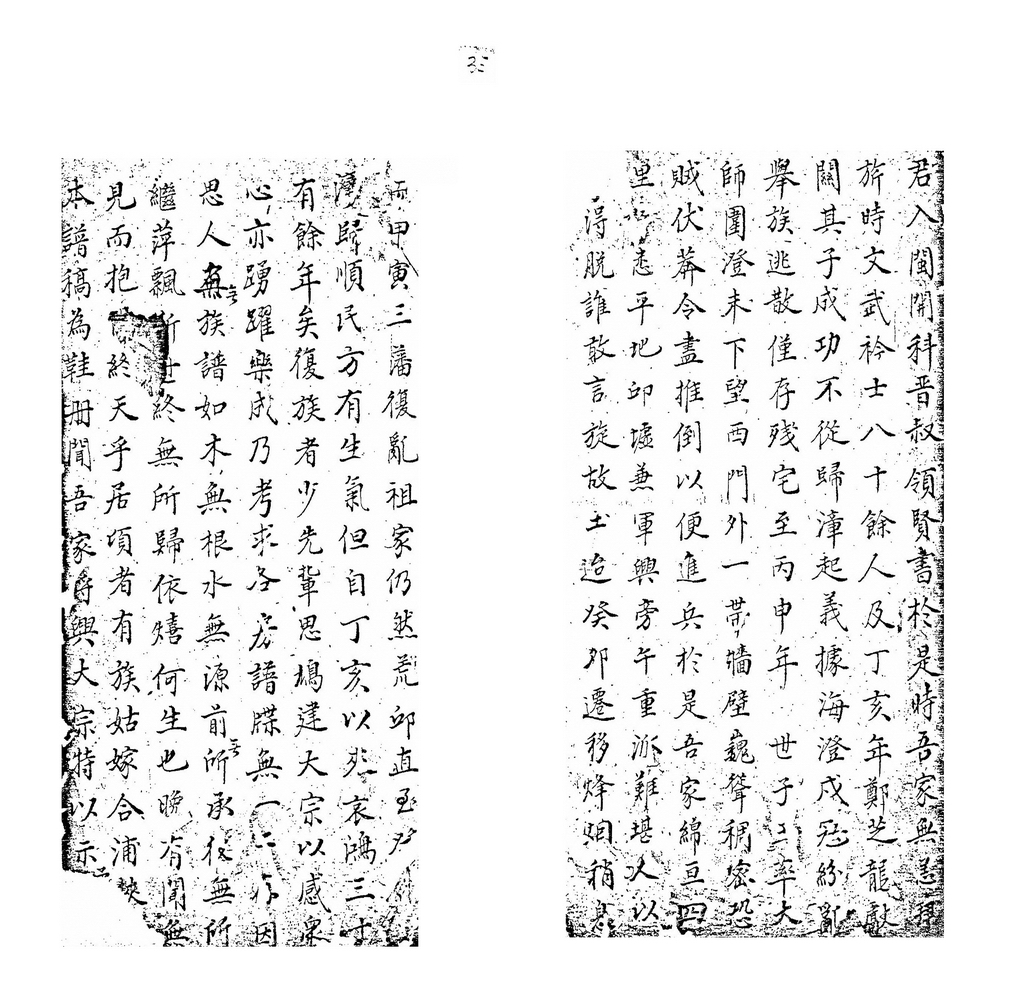 35
君入閩開科晋叔領賢書於是時吾家無恙拜
旂時文武衿士八十餘人及丁亥年鄭芝龍獻
關其子成功不從歸漳起義據海澄戍忽紛亂
舉族逃散僅存残宅至丙申年世子王率大
師圍澄未下望西門外一帶墻壁巍聳稠密恐
賊伏莽令盡推倒以便進兵於是吾家綿亘四
里悉平地邱墟兼軍興旁午重派難堪人以
淂脱誰敢言旋故土迨癸卯遷移烽烟稍息
而甲寅三藩復亂祖家仍然荒邱直至
灣歸順民方有生氣但自丁亥以来哀鴻三十
有餘年矣復族者少先輩思塲建大宗以感衆
心亦踴躍樂成乃考求各房譜牒無一二存因
思人無族譜如木無根水無源前所承後無所
繼萍飄世終無所歸依嬉何生也晚有聞無
見而抱終天乎居項者有族姑嫁合浦
本譜稿為鞋冊聞吾家将興大宗特以示